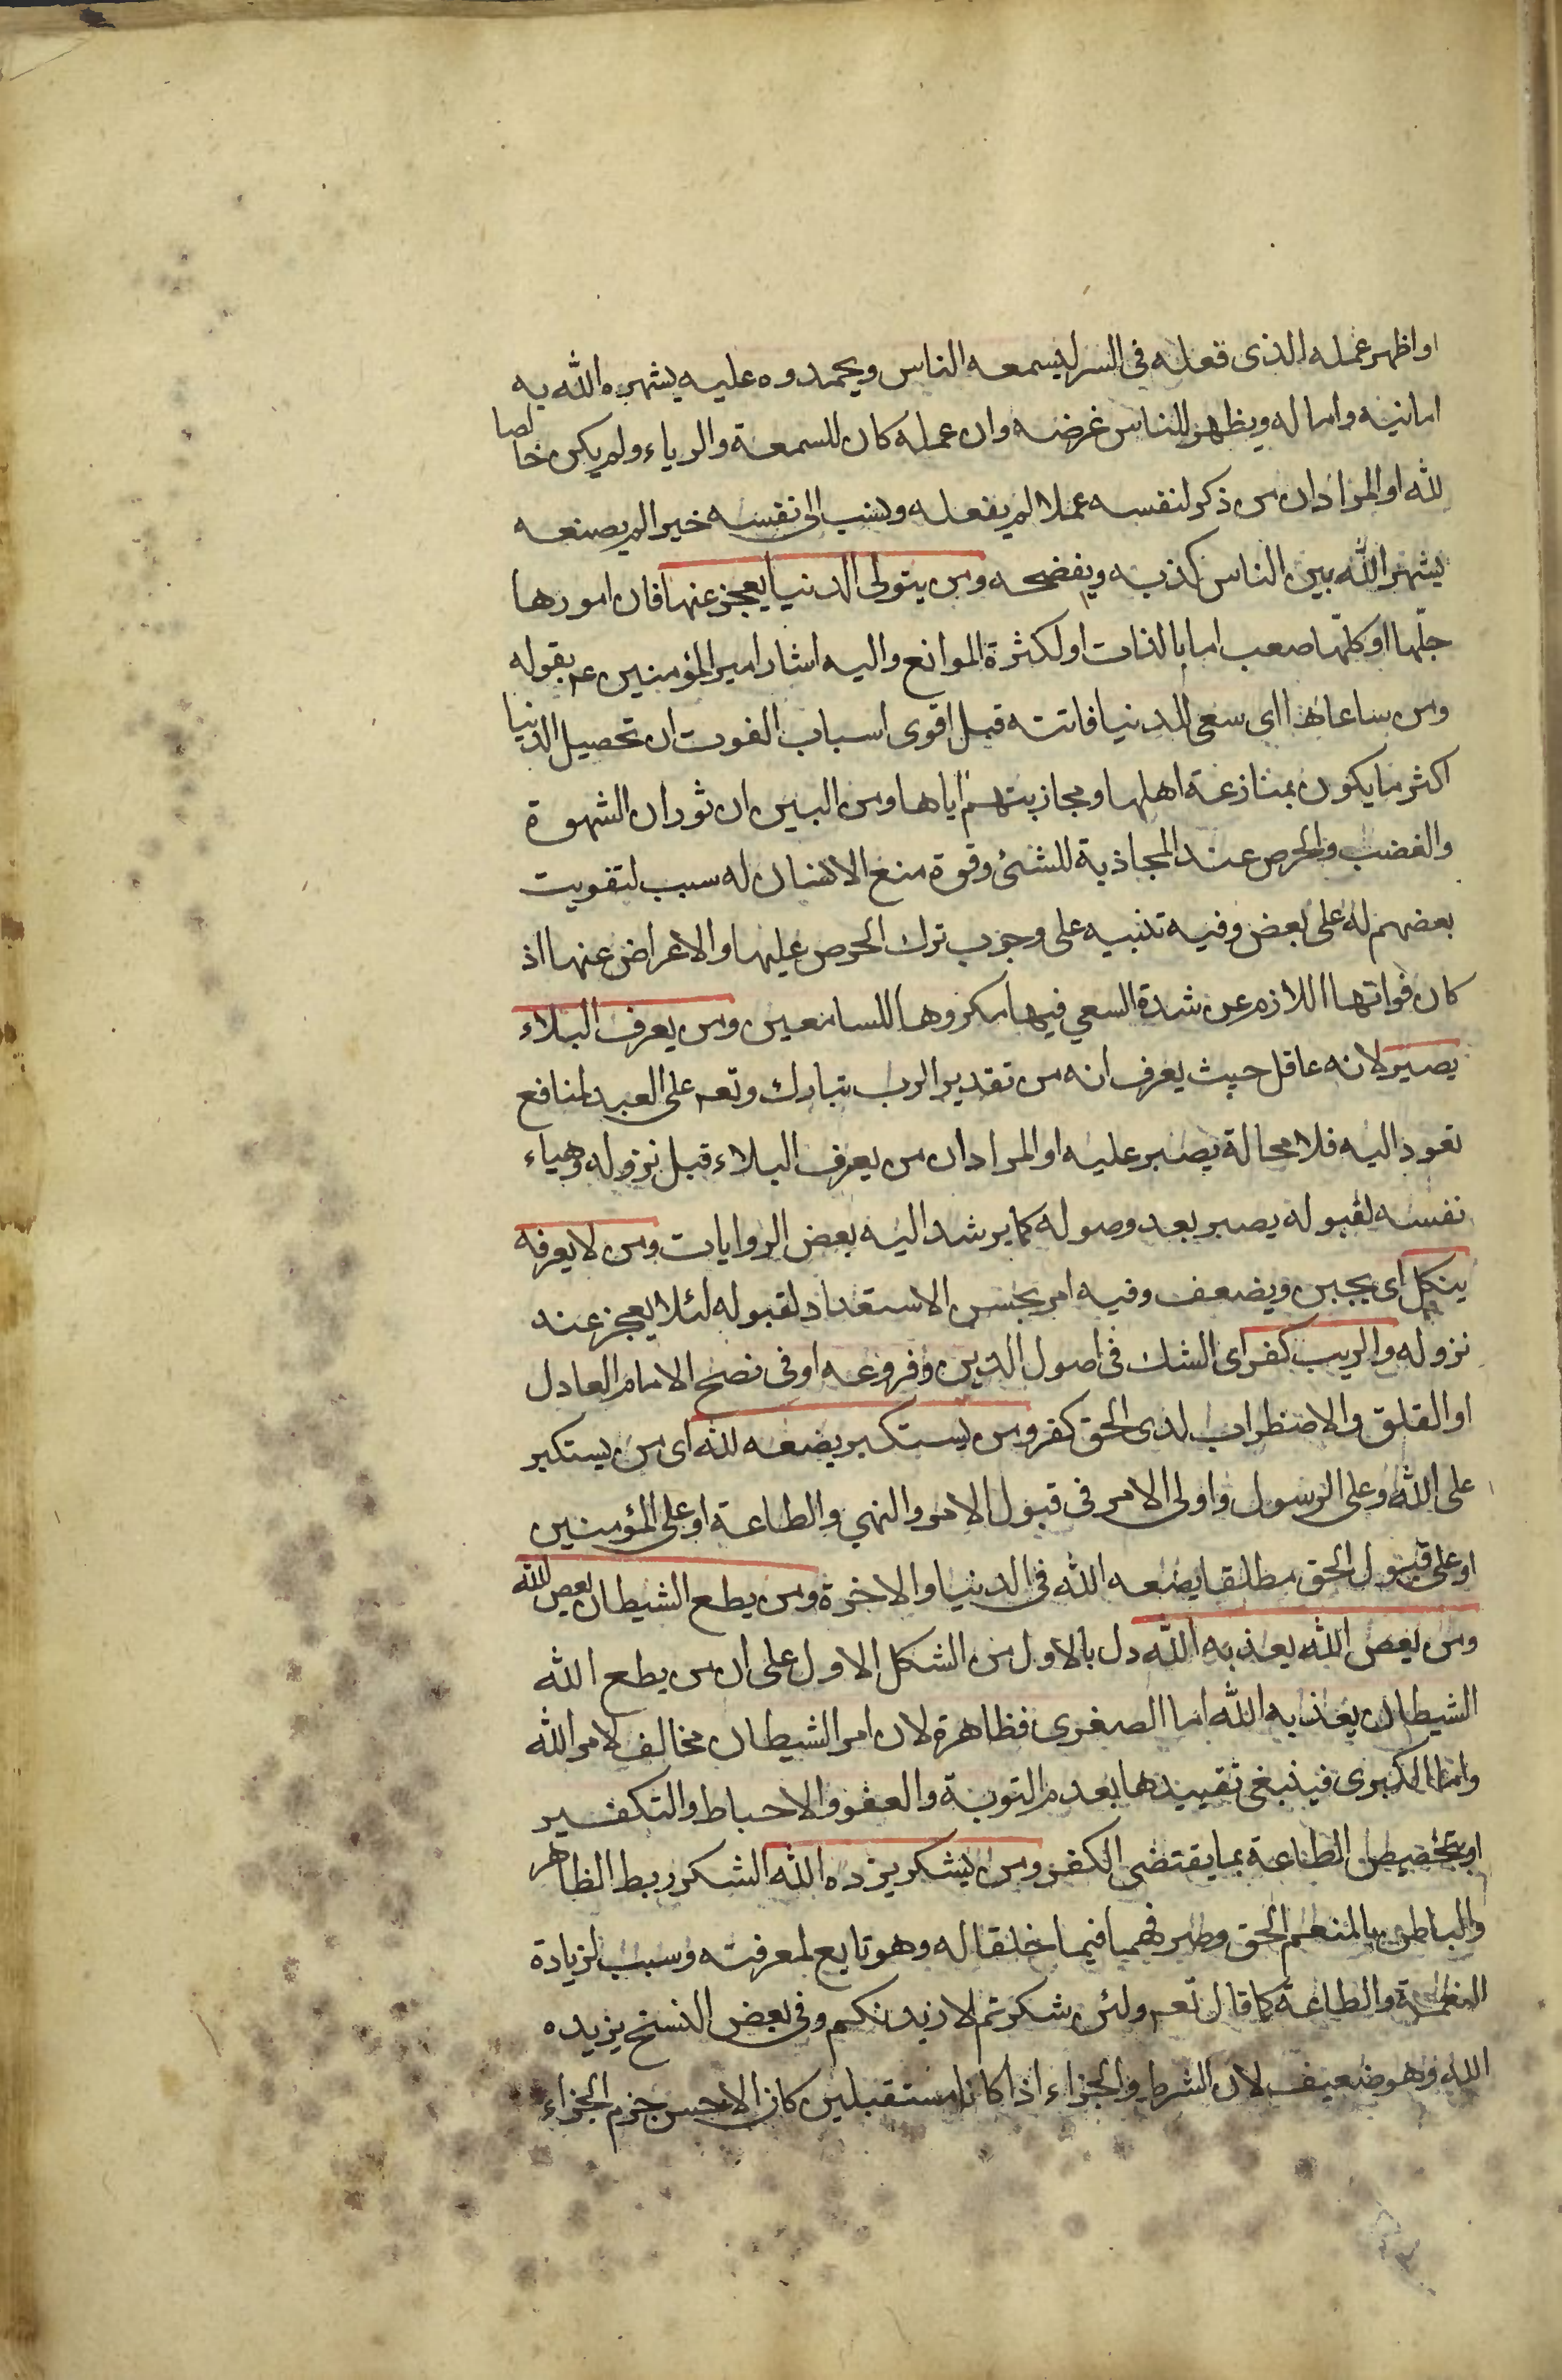 او اظهر عمله الذى فعله فى السر ليسمعه الناس ويحمدوه عليه يشهره الله به
امانيه واماله ويظهر للناس غرضه وان عمله كان للسمعة والرياء ولم يكن خالصا
لله او المراد ان من ذكر لنفسه عملا لم يفعله ونسب الى نفسه خيرا لم يصنعه
يشهر الله بين الناس كذبه ويفضحه ومن يتولى الدنيا يعجز عنها فان امورها
جلّها او كلّها صعب اما بالذات او لكثرة الموانع واليه اشار امير المؤمنين عم بقوله
ومن ساعاها اى سعى للدنيا فاتته قيل اقوى اسباب الفوت ان تحصيل الدنيا
اكثر ما يكون بمنازعة اهلها ومجاذبتهم اياها ومن البين ان ثوران الشهوة
والغضب والحرص عند المجاذبة للشئ وقوة منع الانسان له سبب لتفويت
بعضهم له على بعض وفيه تنبيه على وجوب ترك الحرص عليها والاعراض عنها اذ
كان فواتها اللازم عن شدة السعي فيها مكروها للسامعين ومن يعرف البلاء
يصبر لانه عاقل حيث يعرف انه من تقدير الرب تبارك وتعم على العبد لمنافع
تعود اليه فلا محالة يصبر عليه او المراد ان من يعرف البلاء قبل نزوله وهياء
نفسه لقبوله يصبر بعد وصوله كما يرشد اليه بعض الروايات ومن لا يعرفه
ينكل اى يجبن ويضعف وفيه امر بحسن الاستعداد لقبوله لئلا يعجز عند
نزوله والريب كفر اى الشك فى اصول الدين وفروعه او فى نصح الامام العادل
او القلق والاضطراب لدى الحق كفر ومن يستكبر يضعه لله اى من يستكبر
على الله وعلى الرسول واولى الامر فى قبول الامر والنهي والطاعة او على المؤمنين
او على قبول الحق مطلقا يضعه الله فى الدنيا والاخرة ومن يطع الشيطان يعص الله
ومن يعص الله يعذبه الله دل بالاول من الشكل الاول على ان من يطع الله
الشيطان يعذبه الله اما الصغرى فظاهرة لان امر الشيطان مخالف لامر الله
واما الكبرى فينبغى تقييدها بعدم التوبة والعفو والاحباط والتكفير
او بتخصيص الطاعة بما يقتضى الكفر ومن يشكر يزده الله الشكر ربط الظاهر
والباطن بالمنعم الحق وصرفهما فيما خلقا له وهو تابع لمعرفته وسبب لزيادة
النعمة والطاعة كما قال تعم ولئن شكرتم لازيدنكم وفى بعض النسخ يزيده
الله وهو ضعيف لان الشرط والجزاء اذا كانا مستقبلين كان الاحسن جزم الجزاء